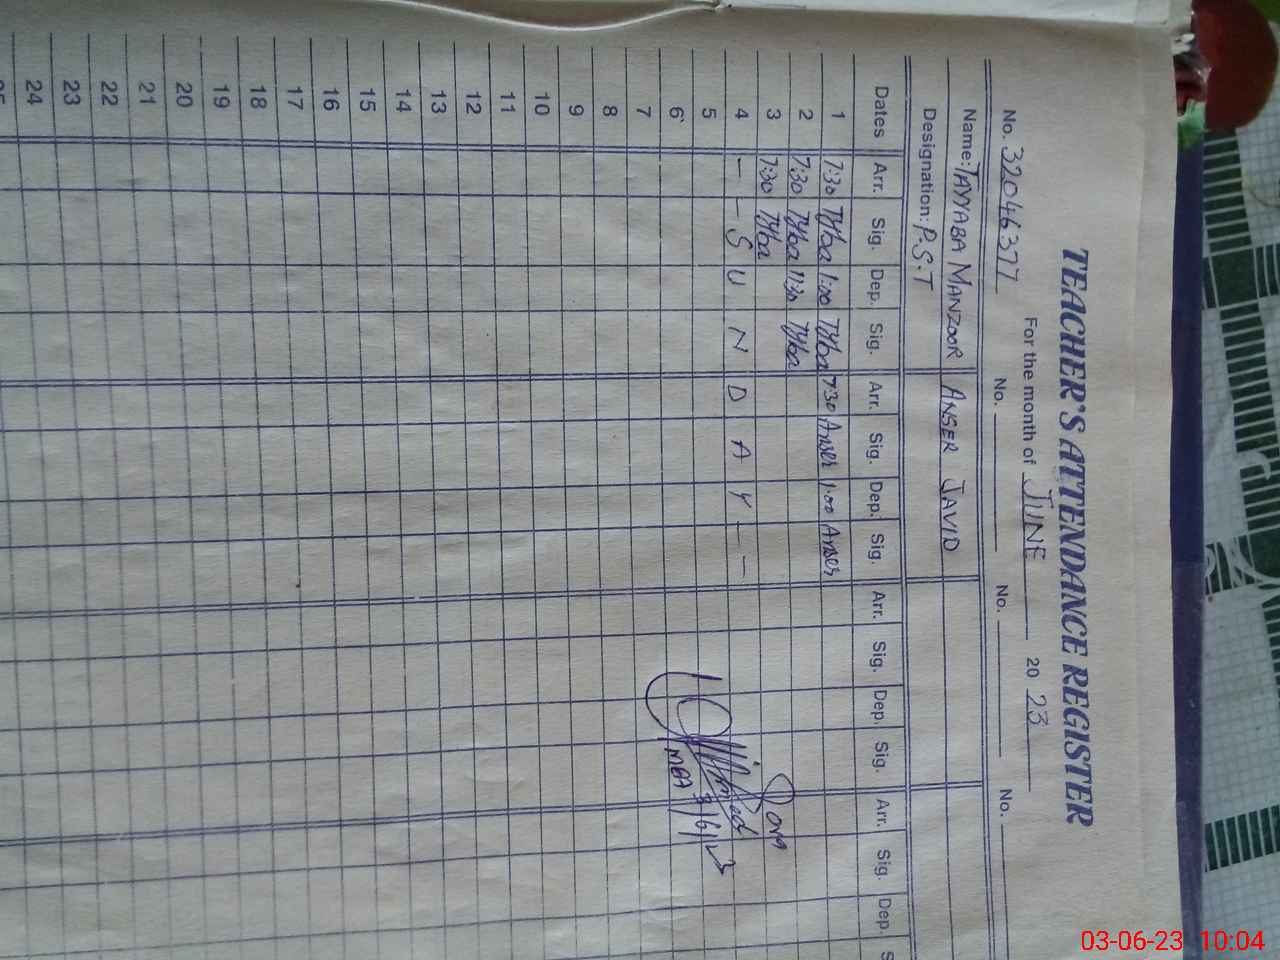 TEACHER'S ATTENDANCE REGISTER
For the month of JUNE 2023
No. 32046377 No. No. No.
Name: TAYYABA MANZOOR ANSER JAVID
Designation: P.S.T
Dates Arr. Sig. Dep. Sig. Arr. Sig. Dep. Sig. Arr. Sig. Dep. Sig. Arr. Sig. Dep. S
1 7:30 Tyba 1:00 Tyba 7:30 Anser 1:00 Anser
2 7:30 Tyba 11:30 Tyba
3 7:30 Tyba
4 - - S U N D A Y - -
5
6 MEA 3/6/23
7
8
9
10
11
12
13
14
15
16
17
18
19
20
21
22
23
24
25
03-06-23 10:04